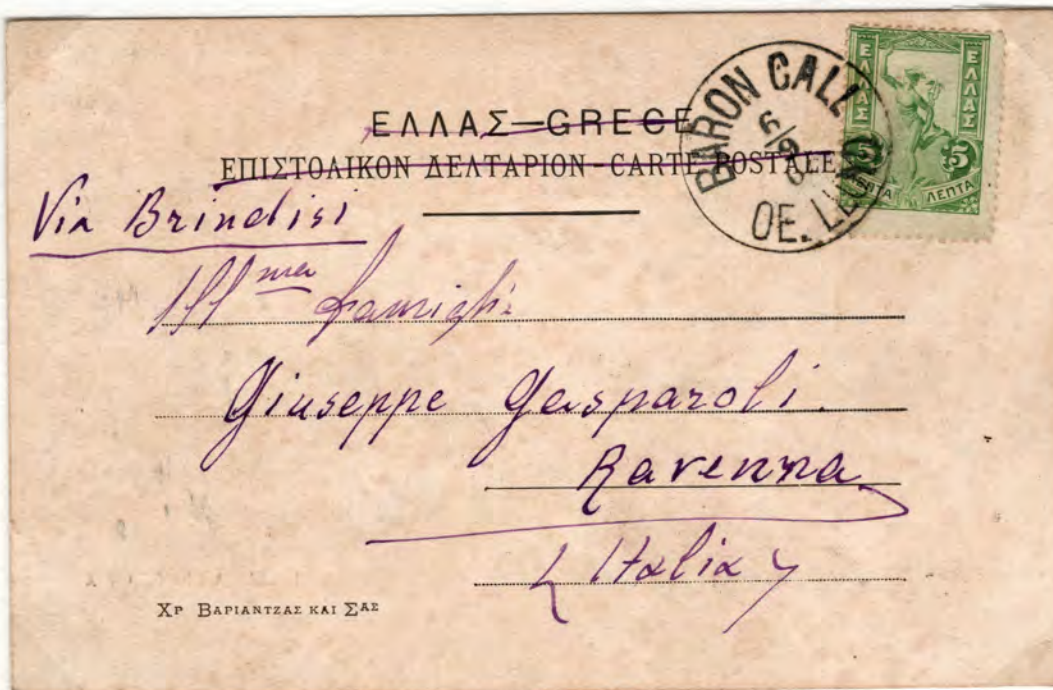 ΕΛΛΑΣ—GRECE
ΕΠΙΣΤΟΛΙΚΟΝ ΔΕΛΤΑΡΙΟΝ - CARTE POSTALE
BARON CALL
OE. LL
ΕΛΛΑΣ
ΕΛΛΑΣ
5
5
ΛΕΠΤΑ
ΛΕΠΤΑ
Via Brindisi
Ill ma Famiglia
Giuseppe Gasparoli.
Ravenna
Italia
ΧΡ ΒΑΡΙΑΝΤΖΑΣ ΚΑΙ ΣΑΣ